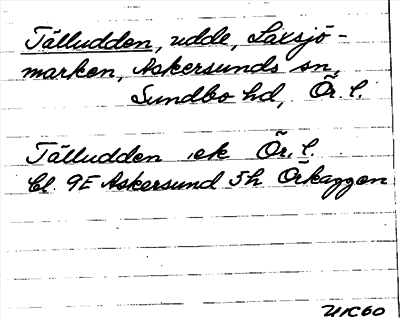 Tälludden, udde, Laxsjö-
marken, Askersunds sn,
Sundbo hd, Ör. l.
Tälludden .ek Ör. l.
bl. 9E Askersund 5h Örkaggen
UK60